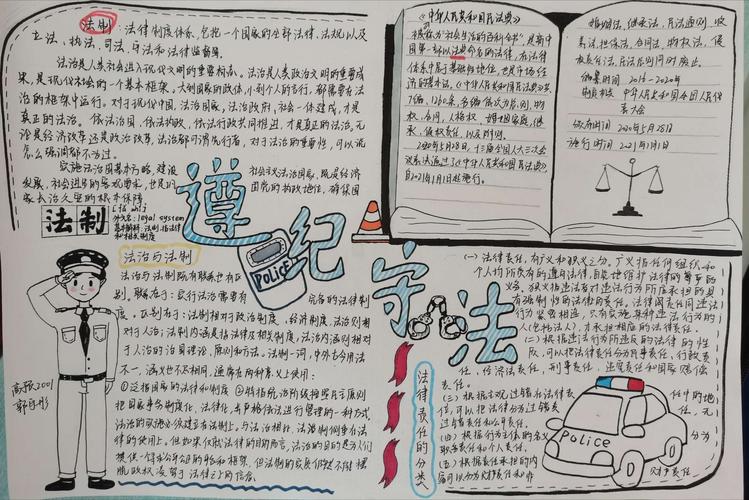 法制：法律制度体系，包括一个国家的全部法律、法规以及
立法、执法、司法、守法和法律监督等。
法治是人类社会进入现代文明的重要标志。法治是人类政治文明的重要成
果，是现代社会的一个基本框架。大到国家的政体，小到个人的言行，都需要在法
治的框架中运行。对于现代中国，法治国家，法治政府，社会一体建成，才是
真正的法治。依法治国，依法执政，依法行政共同推进，才是真正的法治。无
论是经济改革还是政治改革，法治都可谓先行者，对于法治的重要性，可以说
怎么强调都不为过。
实施法治国基本方略，建设
社会主义法治国家，既是经济
发展、社会进步的客观要求，也是
国党的执政地位，确保国
家长治久安的根本保障
法制
外文名：legal system
和相关制度
法治与法制
法治与法制既有联系也有区
别，联系在于：实行法治需要有
完备的法律制
度。区别在于：法制相对于政治制度、经济制度，法治则相
对于人治；法制内涵是指法律及相关制度，法治内涵则相对
于人治的治国理论、原则和方法。法制一词，中外古今用法
不一，涵义也不尽相同，通常在两种意义上使用：
①泛指国家的法律和制度
遵纪守法
POLICE
高预2001
《中华人民共和国民法典》
被称为“社会生活的百科全书”，是新中
国第一部以法典命名的法律，在法律
体系中居于基础性地位，也是市场经
济的基本法。《中华人民共和国民法典》共
7编、1260条，各编依次为总则、物
权、合同、人格权、婚姻家庭、继
承、侵权责任，以及附则。
2020年5月28日，十三届全国人大三次会
议表决通过了《中华人民共和国民法典》
自2021年1月1日起施行。
婚姻法、继承法、民法通则、收
养法、担保法、合同法、物权法、侵
权责任法、民法总则同时废止。
编纂时间 2015-2020年
制定机关 中华人民共和国全国人民代
表大会
公布时间 2020年5月28日
施行时间 2021年1月1日
(一) 法律责任，有广义和狭义之分。广义指任何组织和
个人均所负有的遵守法律，自觉地维护法律的尊严的
义务。狭义指违法者对违法行为所应承担的具
有强制性的法律上的责任。法律责任同违法
行为紧密相连，只有实施某种违法行为的
人(包括法人)，才承担相应的法律责任。
(二) 根据违法行为所违反的法律的性
质，可以把法律责任分为民事责任，行政责
任，经济法责任，刑事责任，违宪责任和国家赔偿
责任。
(三) 根据主观过错在法律责
任中的地
位，可以把法律分为过错责
任，无
过错责任和公平责任。
(四) 根据行为主体的名义
分为
职务责任和个人责任。
(五) 根据责任承担的内
容可以分为财产责任和非
财产责任
法律责任的分类
Police